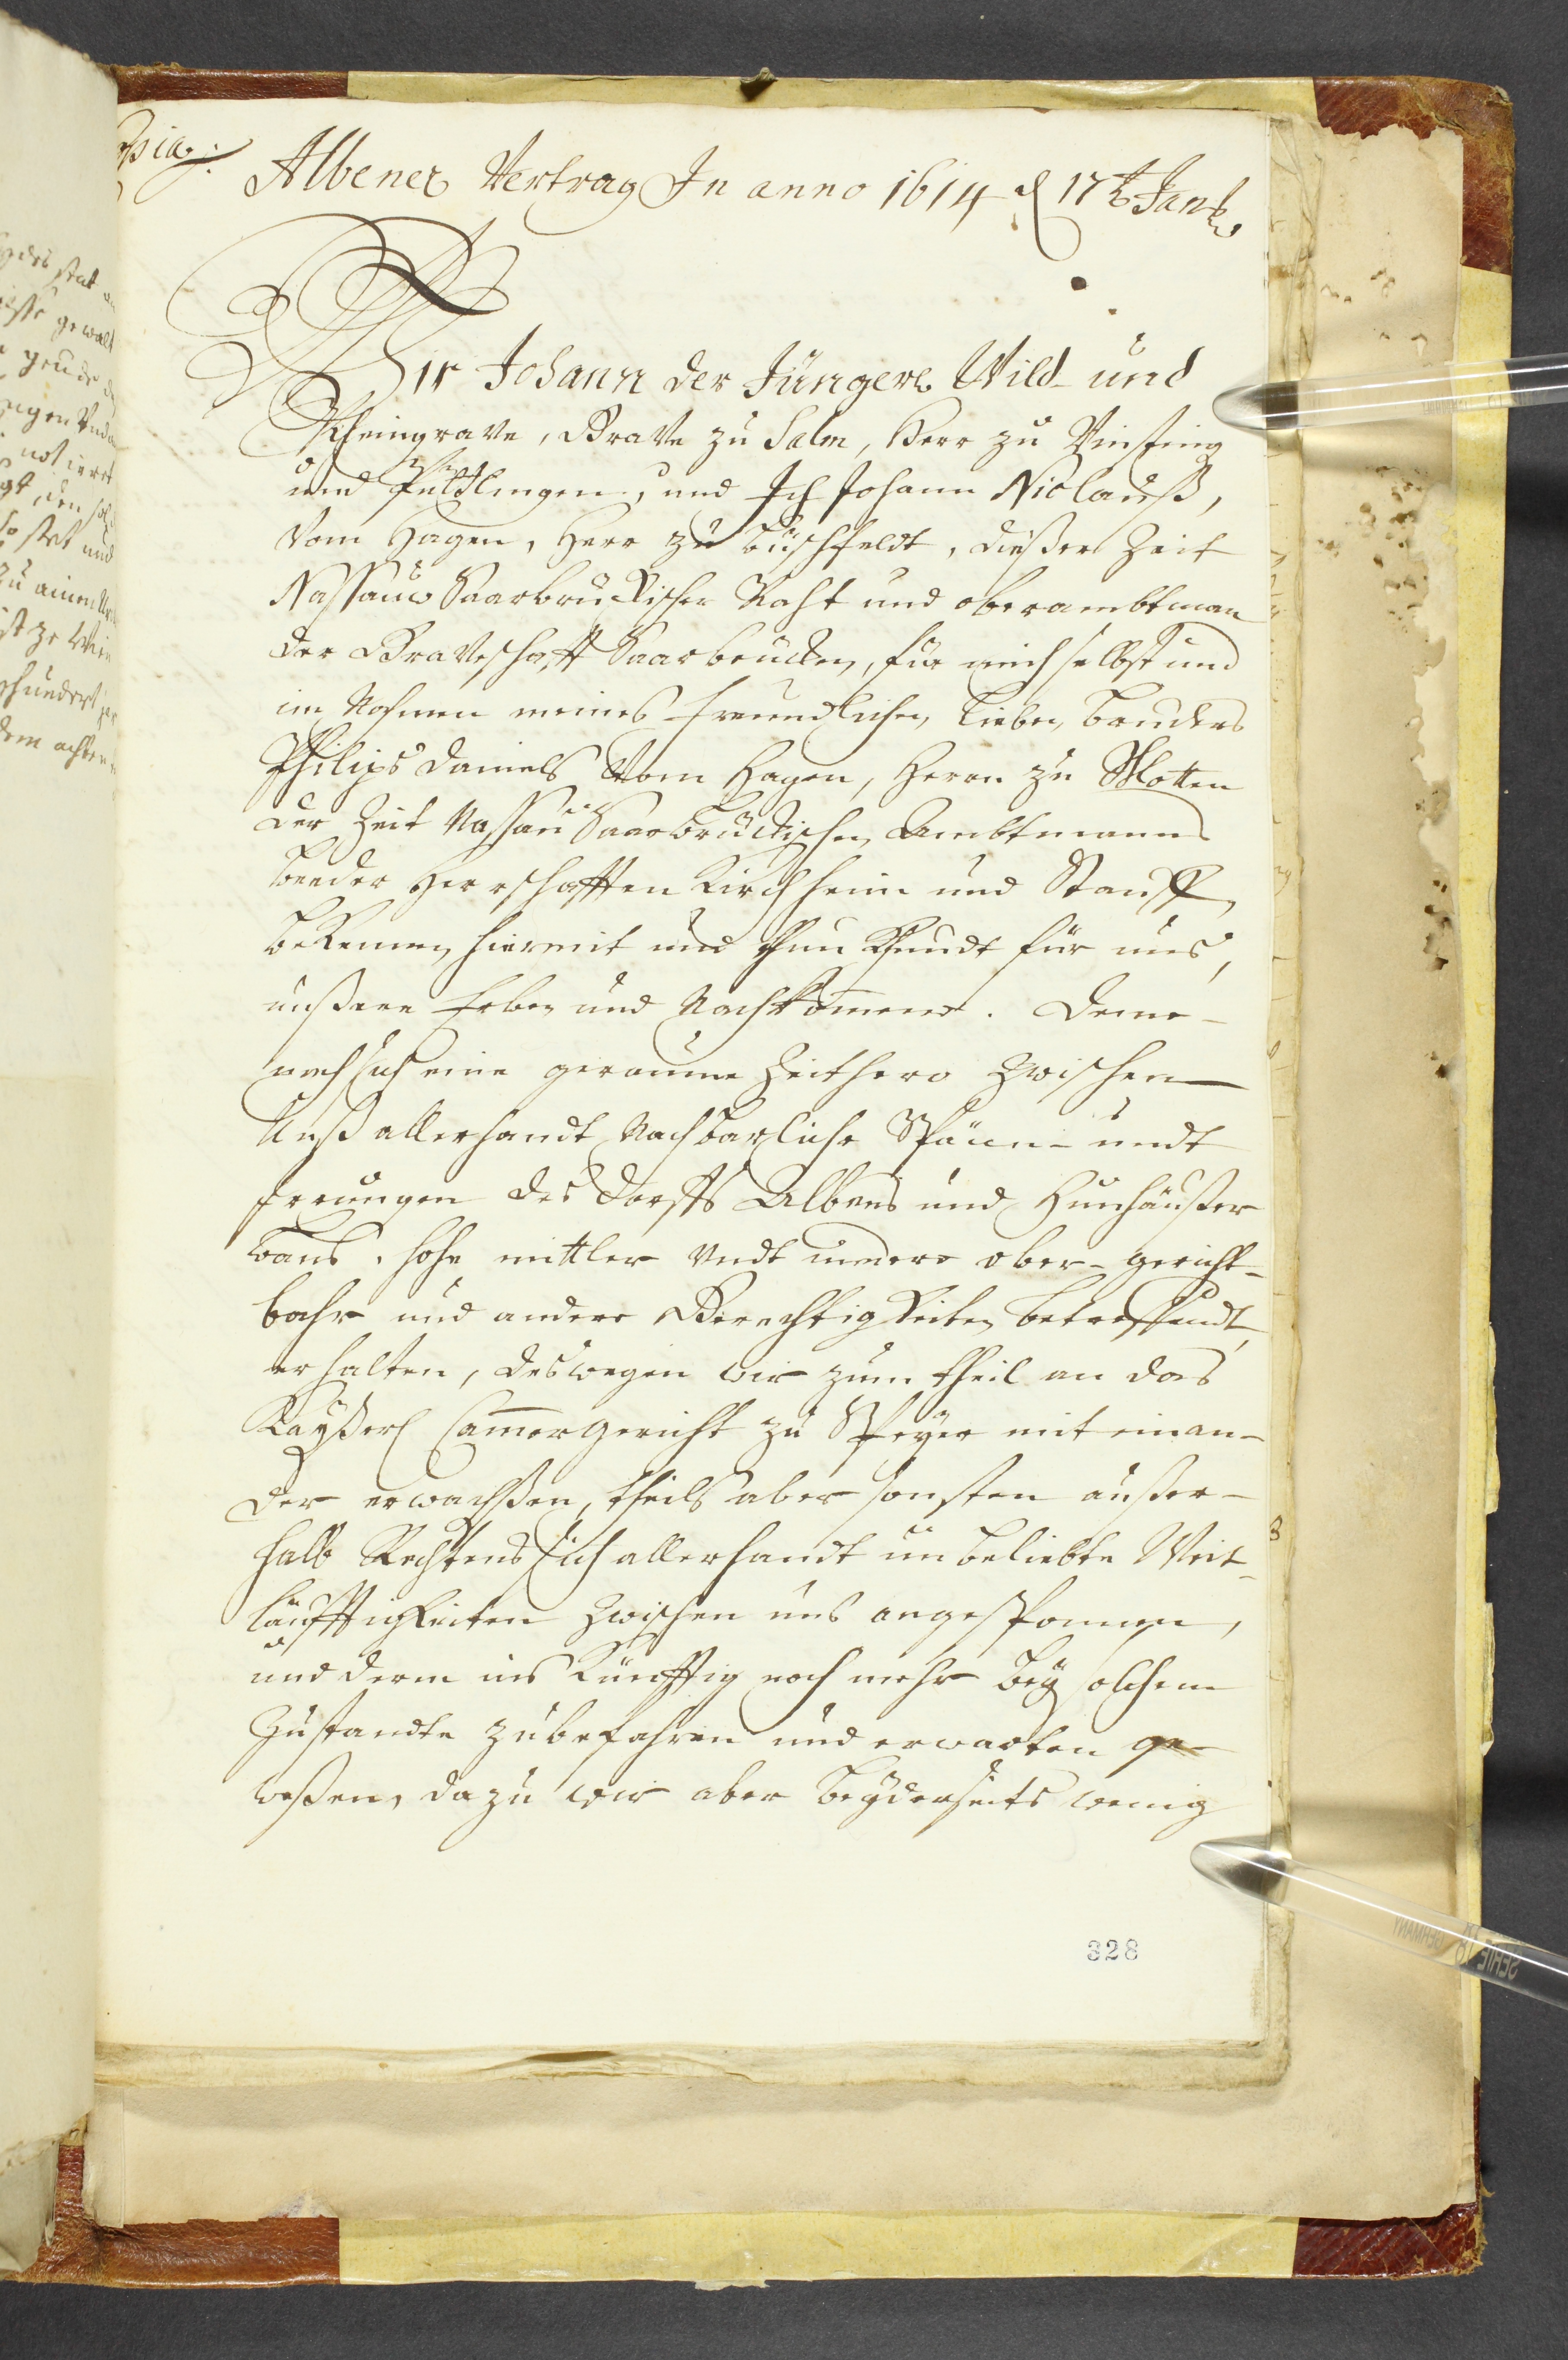 Albener Vertrag In anno 1614 d 17t Jan
Wir Johann der Jüngere Wild- und
Rheingrave, Grave zu Salm, Herr zu Vinsting
und Püttlingen, und Ich Johann Niclauß,
vom Hagen, Herr zu Büschfeldt, dießer Zeit
Nassauw Saarbrückischer Raht und oberambtman
der Graveschafft Saarbrücken, für mich selbst und
im Nahmen meines freundlichen, lieben, bruders
Philips Daniels vom Hagen, Herrn zu Motten
der Zeit Nassau Saarbrückischen Ambtmanns
beeder Herrschafften Kirchheim und Stauff,
bekennen hiermit und thun Khundt für uns,
unßere Erben und Nachkommene. Deme-
nach sich eine geraume Zeithero zwischen
Unß allerhandt Nachbarliche Spänn- undt
Irrungen des dorffs Albens und Hunhäußer
bans, hohe mittler undt  ober- gericht-
bahr- und andere Gerechtigkeiten betreffendt,
erhalten, deswegen wir zum theil an das
Kayßerl Cammergericht zu Speyer mit einan-
der erwachßen, theils aber sonsten außer-
halb Rechtens sich allerhandt unbeliebte Weit-
läufftigkeiten zwischen uns angesponnen,
und deren ins Künfftig noch mehr bey solchem
Zustandte zubefahren und erwarten ge-
weßen, dazu wir aber beyderseits wenig
328